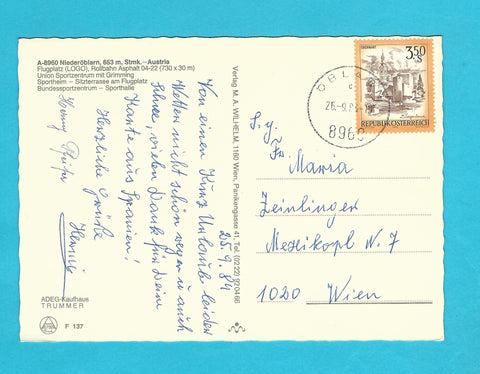 A-8960 Niederöblarn, 653 m, Stmk.–Austria
Flugplatz (LOGO), Rollbahn Asphalt 04-22 (730 x 30 m)
Union Sportzentrum mit Grimming
Sportheim – Sitzterrasse am Flugplatz
Bundessportzentrum – Sporthalle
25.9.84
Von einen Kurz Urlaub leider
Wetter nicht schön regen u. auch
Schnee, vielen Dank für Dein
Karte aus Spanien!
Herzliche Grüße
ADEG-Kaufhaus
TRUMMER
F 137
Verlag M. A. WILHELM, 1160 Wien, Pannikengasse 41, Tel. (02 22) 92 04 66
ÖBLA
8960
3,50
S
OBERWART
REPUBLIK ÖSTERREICH
Fr. Maria
Zeinlinger
N. 7
1020 Wien